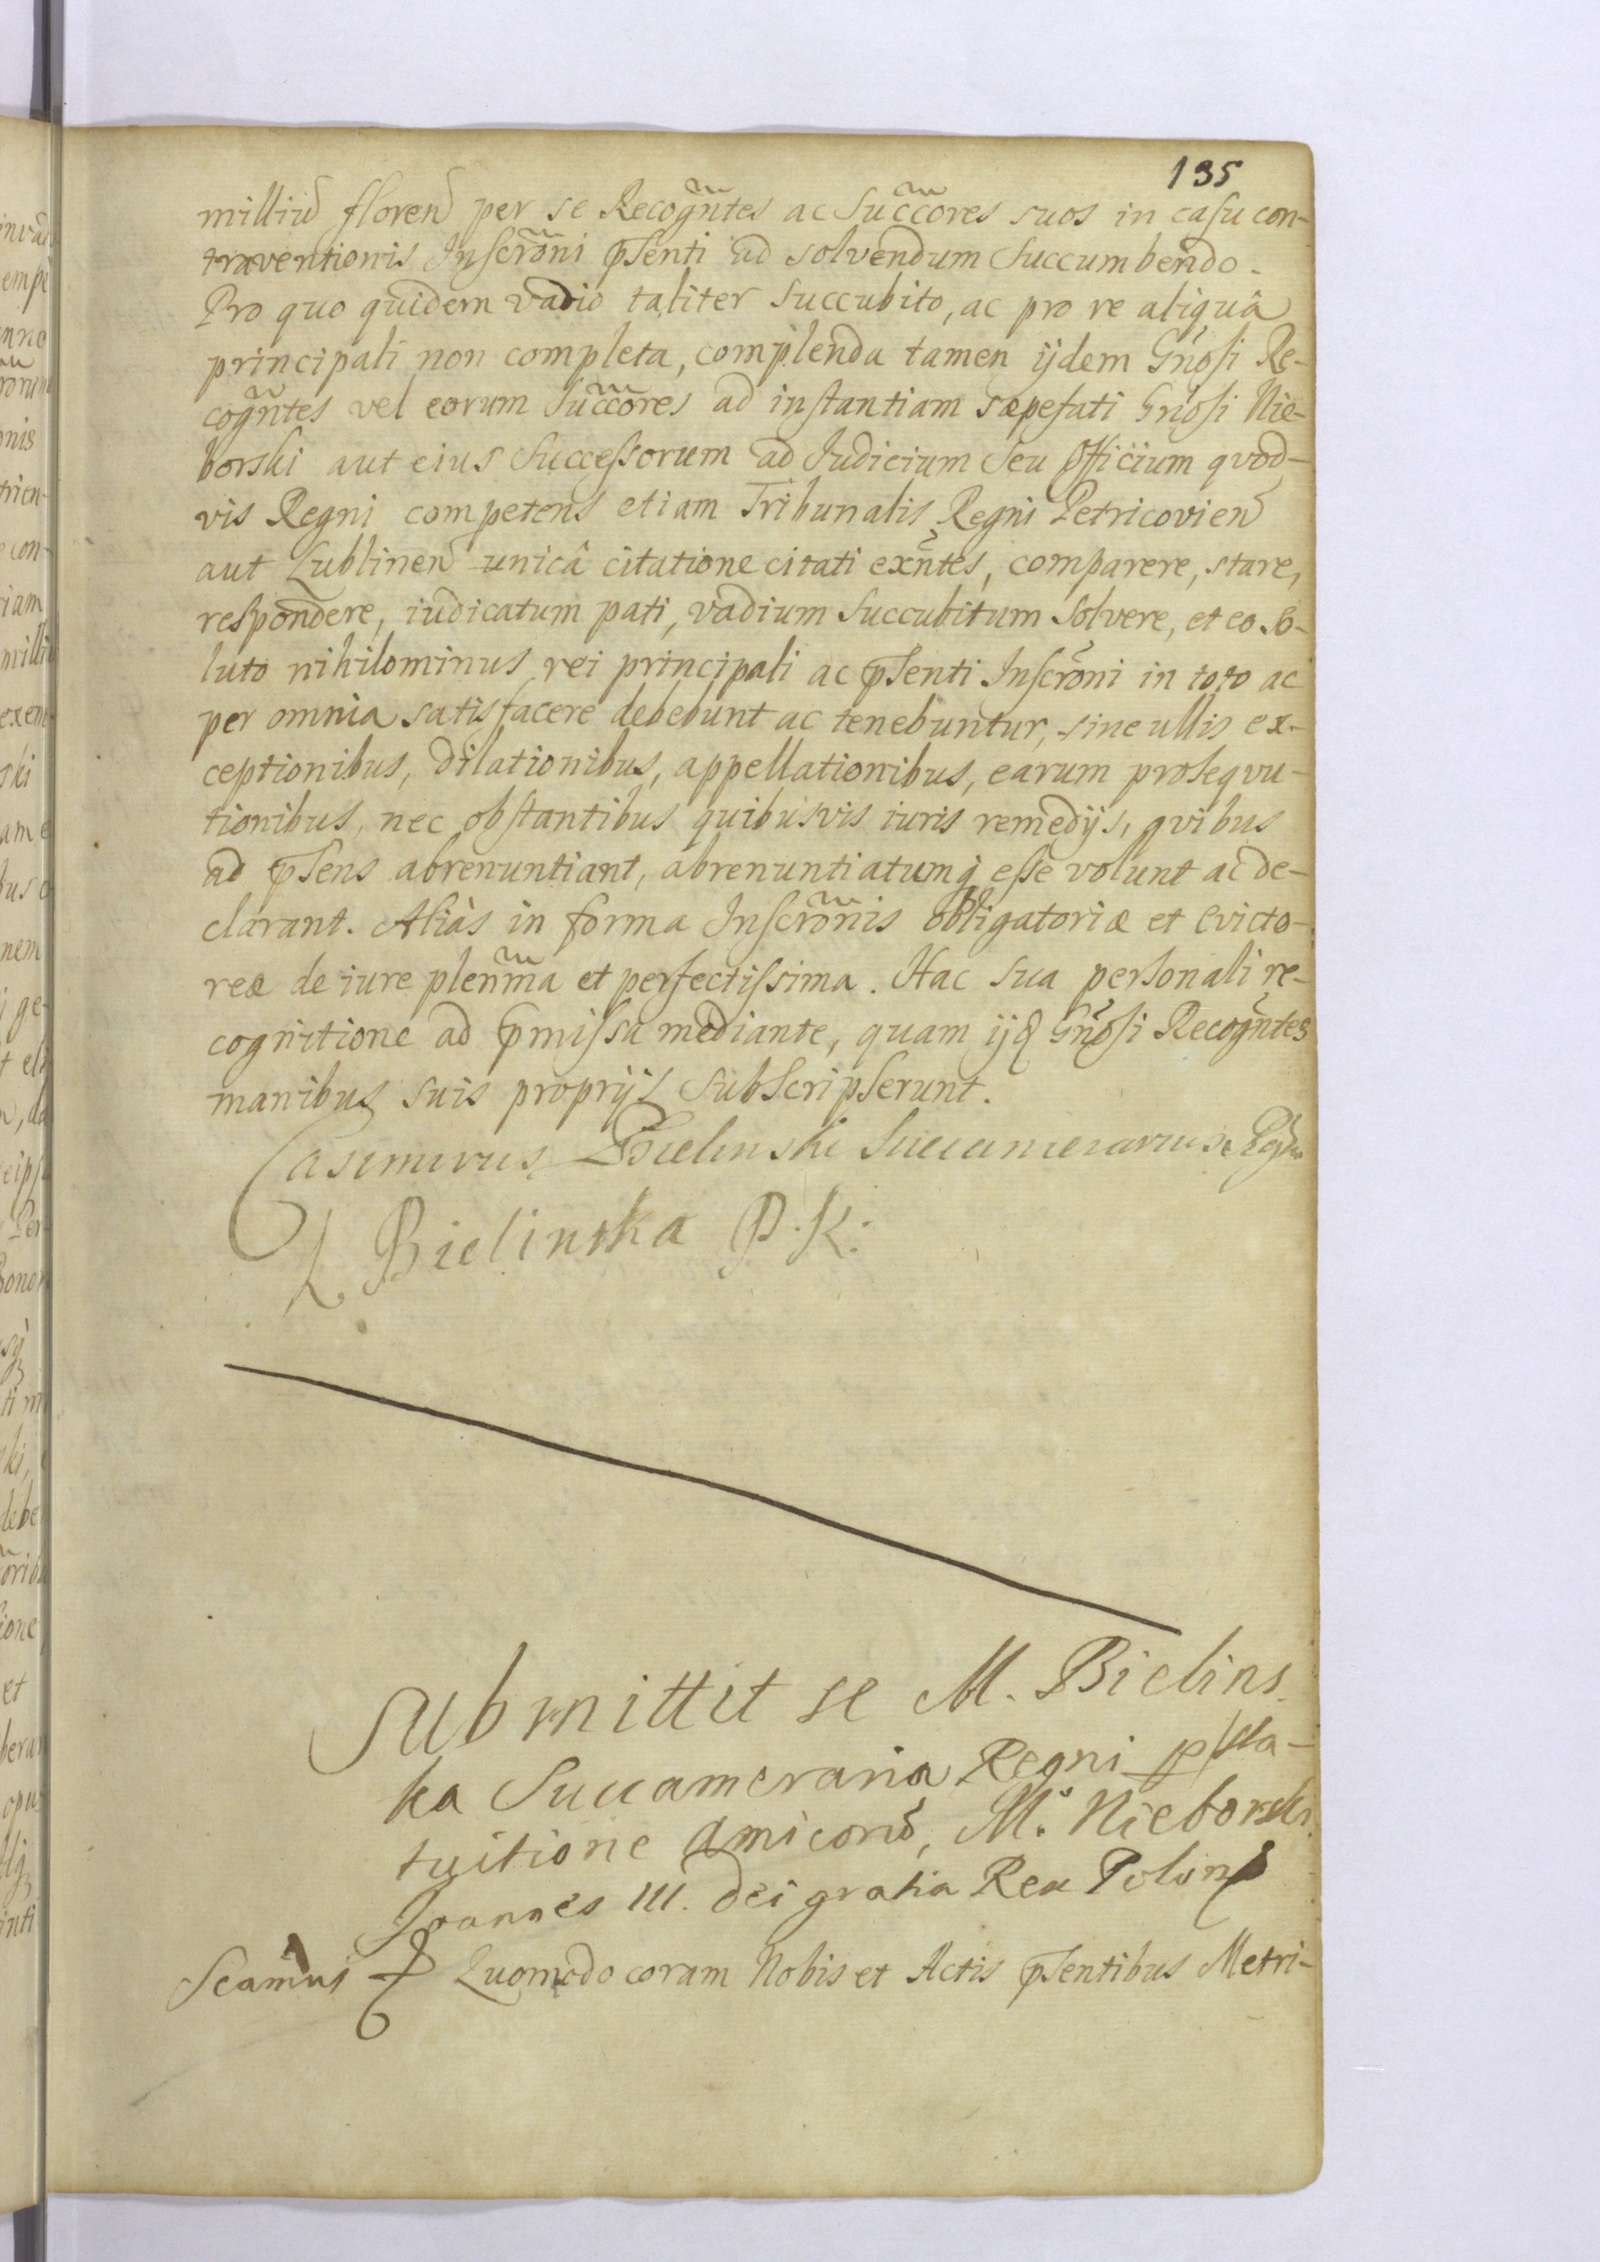 135
milliū floren̄ per se Recogñtes ac Succ̃ores suos in casu con-
traventionis Inscrõni p̄senti ad solvendum succumbendo.
Pro quo quidem vadio taliter succubito, ac pro re aliquâ
principali non completa, complenda tamen ijdem Gñosi Re-
cogñtes vel eorum Succ̃ores ad instantiam sæpefati Gñosi Nie-
borski aut eius Successorum ad Judicium seu Officium quod-
vis Regni competens etiam Tribunalis Regni Petricovien̄
aut Lublinen̄ unicâ citatione citati exñtes, comparere, stare,
respondere, iudicatum pati, vadium succubitum solvere, et eo so-
luto nihilominus rei principali ac p̄senti Inscrõni in toto ac
per omnia satisfacere debebunt ac tenebuntur, sine ullis ex-
ceptionibus, dilationibus, appellationibus, earum prosequu-
tionibus, nec obstantibus quibusvis iuris remedijs, quibus
ad p̄sens abrenuntiant, abrenuntiatumq̨ esse volunt ac de-
clarant. Aliàs in forma Inscrõnis obligatoriæ et evicto-
reæ de iure pleñma et perfectissima. Hac sua personali re-
cognitione ad p̄missa mediante, quam ijd Gñosi Recogñtes
manibus suis proprijs subscripserunt.
Casimirus Bielinski Succamerarius Regni
L Bielinska P. K:
Submittit se M. Bielins.
ka Succameraria Regni
tuitione amicorū, M. Nieborski.
Joannes III. Dei gratia Rex Polon
Scamus Quomodo coram Nobis et Actis p̄sentibus Metri-